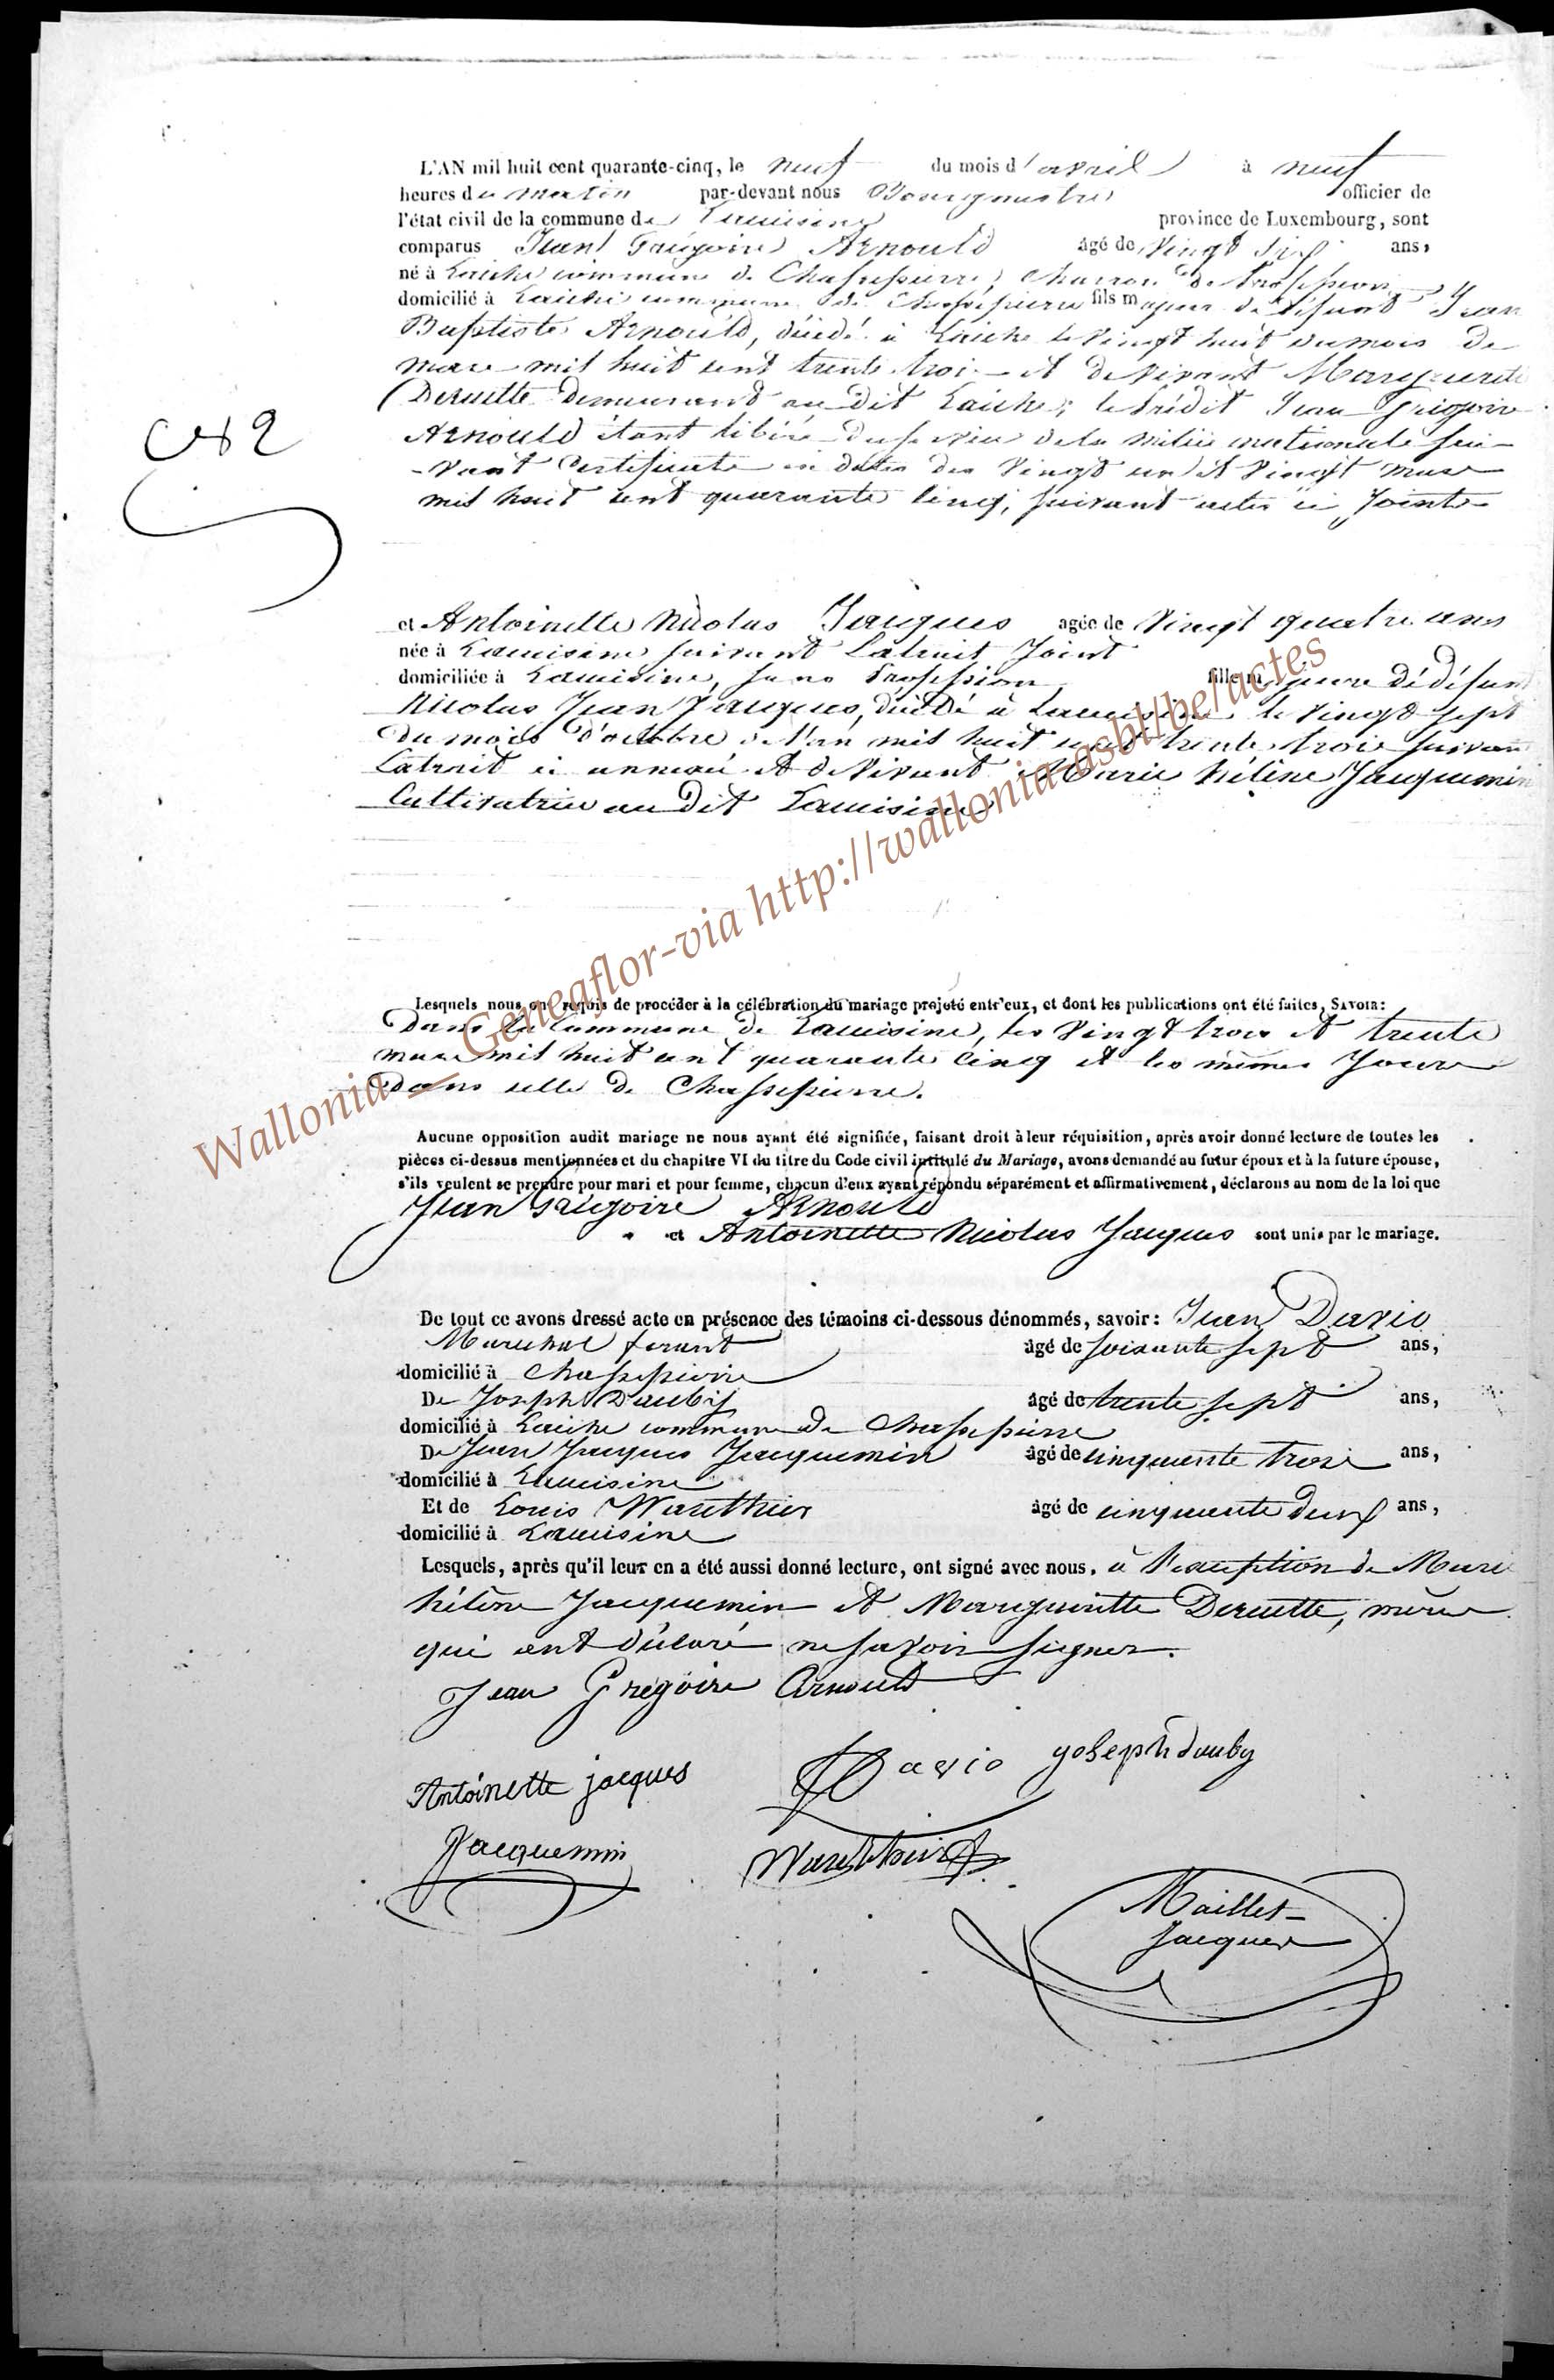 L'AN mil huit cent quarante-cinq, le neuf du mois d'avril à neuf
heures du matin par-devant nous Bourgmestre officier de
l'état civil de la commune de Lacuisine province de Luxembourg, sont
comparus Jean Grégoire Arnould âgé de vingt six ans,
né à Laiche commune de Chassepierre, charron de profession
domicilié à Laiche commune de Chassepierre fils majeur de défunt Jean
Baptiste Arnould, décédé à Laiche le vingt huit du mois de
mars mil huit cent trente trois et de vivant Marguerite
Deruette demeurand au dit Laiche; le prédit Jean Grégoire
Arnould étant libéré du service de la milice nationale sui-
-vant certificate en date des vingt un et vingt mars
mil huit cent quarante cinq, suivant actes ci joints
N° 2
et Antoinette Nicolas Jacques agée de vingt quatre ans
née à Lacuisine suivant l'atrait joint
domiciliée à Lacuisine, sans profession fille majeure de défunt
Nicolas Jean Jacques, décédé à Lacuisine le vingt sept
du mois d'octobre de l'an mil huit cent trente trois suivant
l'atrait ci annexé et de vivant Marie hélène Jacquemin
Cultivatrice au dit Lacuisine
Lesquels nous ont requis de procéder à la célébration du mariage projeté entr'eux, et dont les publications ont été faites, SAVOIR:
Dans la Commune de Lacuisine, les vingt trois et trente
mars mil huit cent quarante cinq et les mêmes jours
dans celle de Chassepierre.
Aucune opposition audit mariage ne nous ayant été signifiée, faisant droit à leur réquisition, après avoir donné lecture de toutes les
pièces ci-dessus mentionnées et du chapitre VI du titre du Code civil intitulé du Mariage, avons demandé au futur époux et à la future épouse,
s'ils veulent se prendre pour mari et pour femme, chacun d'eux ayant répondu séparément et affirmativement, déclarons au nom de la loi que
Jean Grégoire Arnould
et Antoinette Nicolas Jacques sont unis par le mariage.
De tout ce avons dressé acte en présence des témoins ci-dessous dénommés, savoir: Jean Davio
Marechal ferant âgé de soixante sept ans,
domicilié à Chassepierre
De Joseph Dauby âgé de trente sept ans,
domicilié à Laiche commune de Chassepierre
De Jean Jacques Jacquemin âgé de cinquante trois ans,
domicilié à Lacuisine
Et de Louis Wauthier âgé de cinquante deux ans,
domicilié à Lacuisine
Lesquels, après qu'il leur en a été aussi donné lecture, ont signé avec nous, à l'exception de Marie
hélène Jacquemin et Margueritte Deruette, mères
qui ont déclaré ne savoir signer.
Jean Gregoire Arnould
Antoinette jacques Davio joseph dauby
Jacquemin Wauthier
Maillet-
Jacques
Wallonia - Geneaflor-via http://wallonia-asbl/be/actes